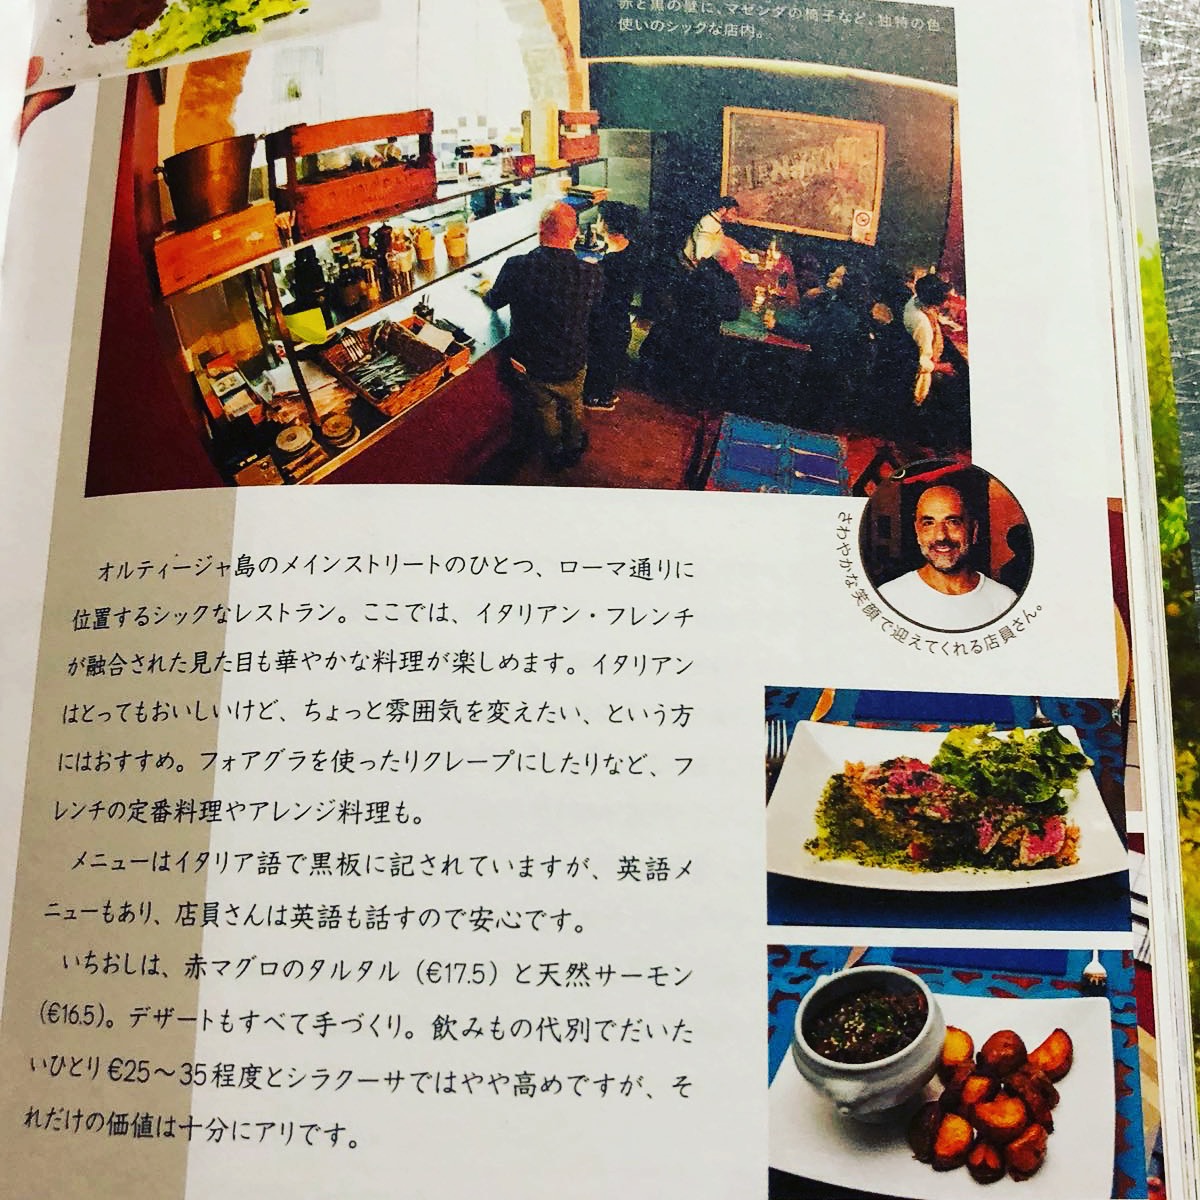 赤と黒の壁に、マゼンダの椅子など、独特の色
使いのシックな店内。
さわやかな笑顔で迎えてくれる店員さん。
オルティージャ島のメインストリートのひとつ、ローマ通りに
位置するシックなレストラン。ここでは、イタリアン・フレンチ
が融合された見た目も華やかな料理が楽しめます。イタリアン
はとってもおいしいけど、ちょっと雰囲気を変えたい、という方
にはおすすめ。フォアグラを使ったりクレープにしたりなど、フ
レンチの定番料理やアレンジ料理も。
メニューはイタリア語で黒板に記されていますが、英語メ
ニューもあり、店員さんは英語も話すので安心です。
いちおしは、赤マグロのタルタル（€17.5）と天然サーモン
（€16.5）。デザートもすべて手づくり。飲みもの代別でだいた
いひとり€25〜35程度とシラクーサではやや高めですが、そ
れだけの価値は十分にアリです。